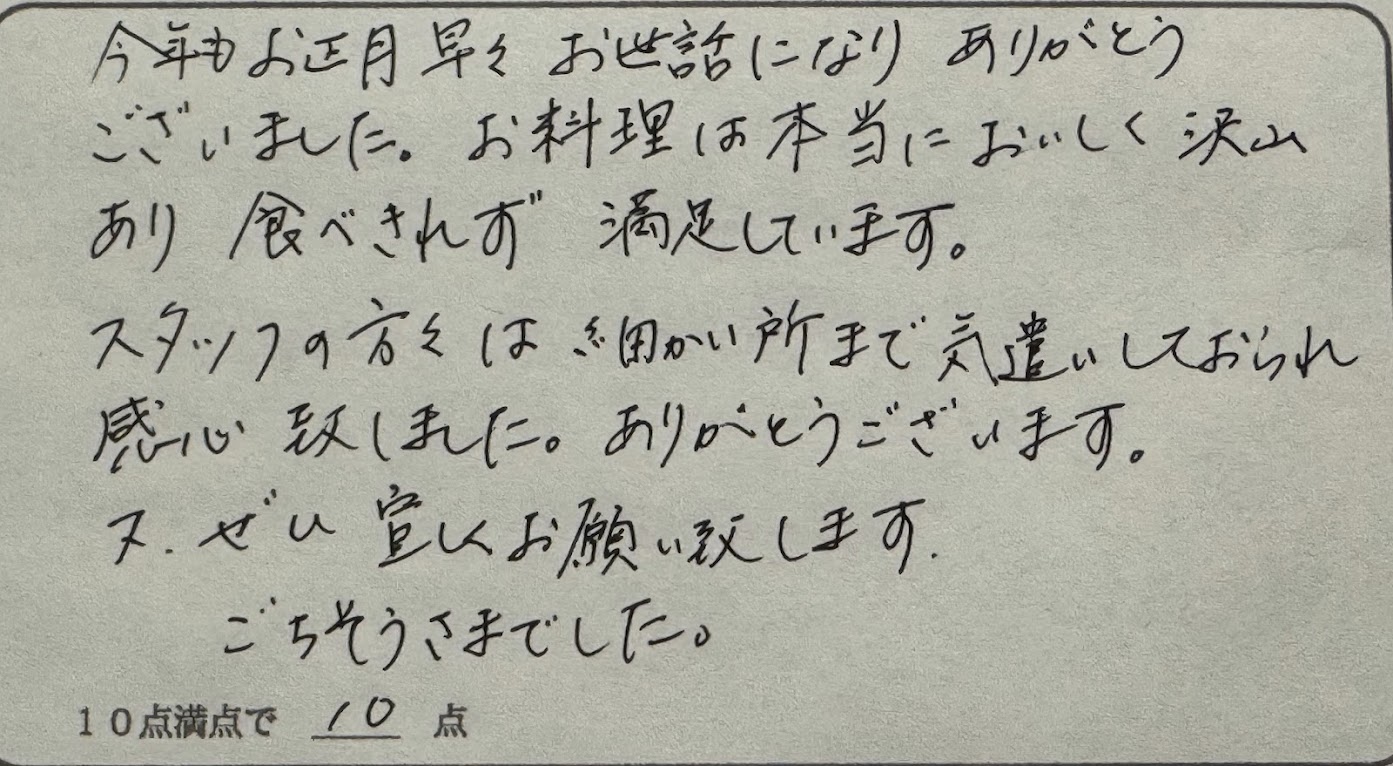 今年もお正月早々お世話になり ありがとう
ございました。お料理は本当においしく沢山
あり 食べきれず 満足しています。
スタッフの方々は細かい所まで気遣いしておられ
感心致しました。ありがとうございます。
又.ぜひ宜しくお願い致します.
ごちそうさまでした。
10点満点で 10 点